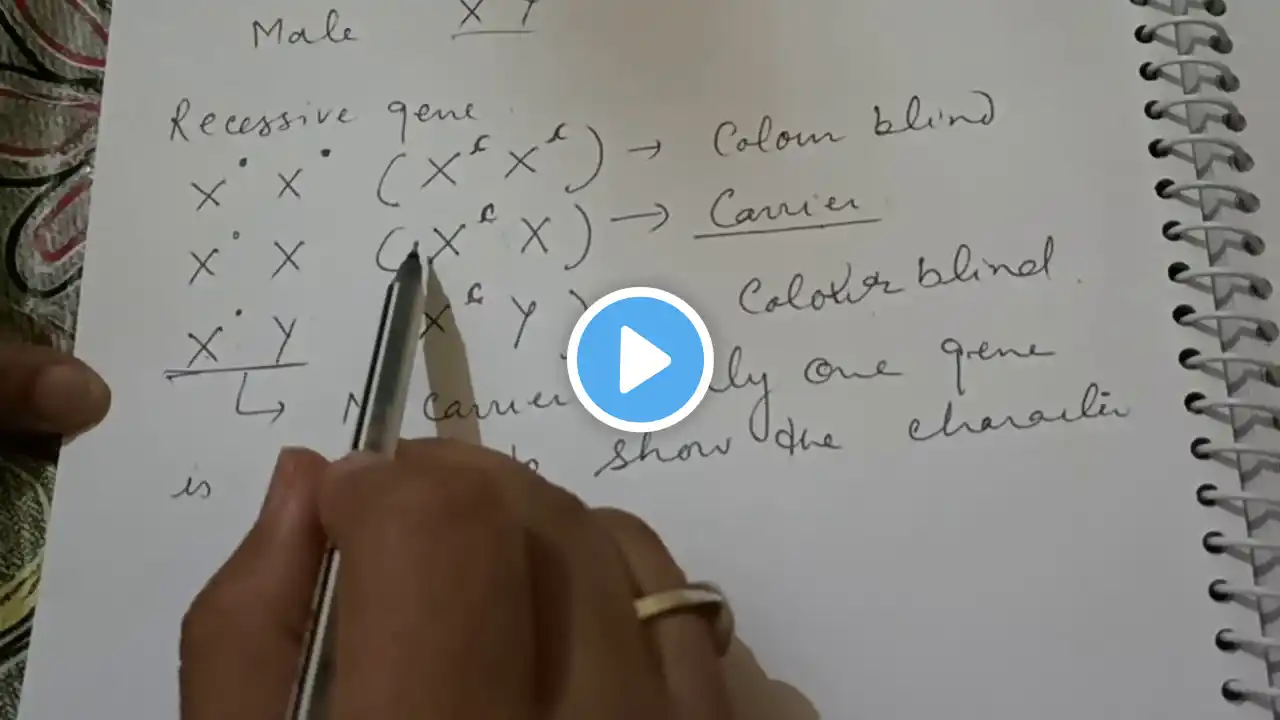 Male X Y
Recessive gene
X• X• (Xc Xc) → Colour blind
X• X (Xc X) → Carrier
X• Y Xc Y) Colour blind.
↳ carrier only one gene
is show the character